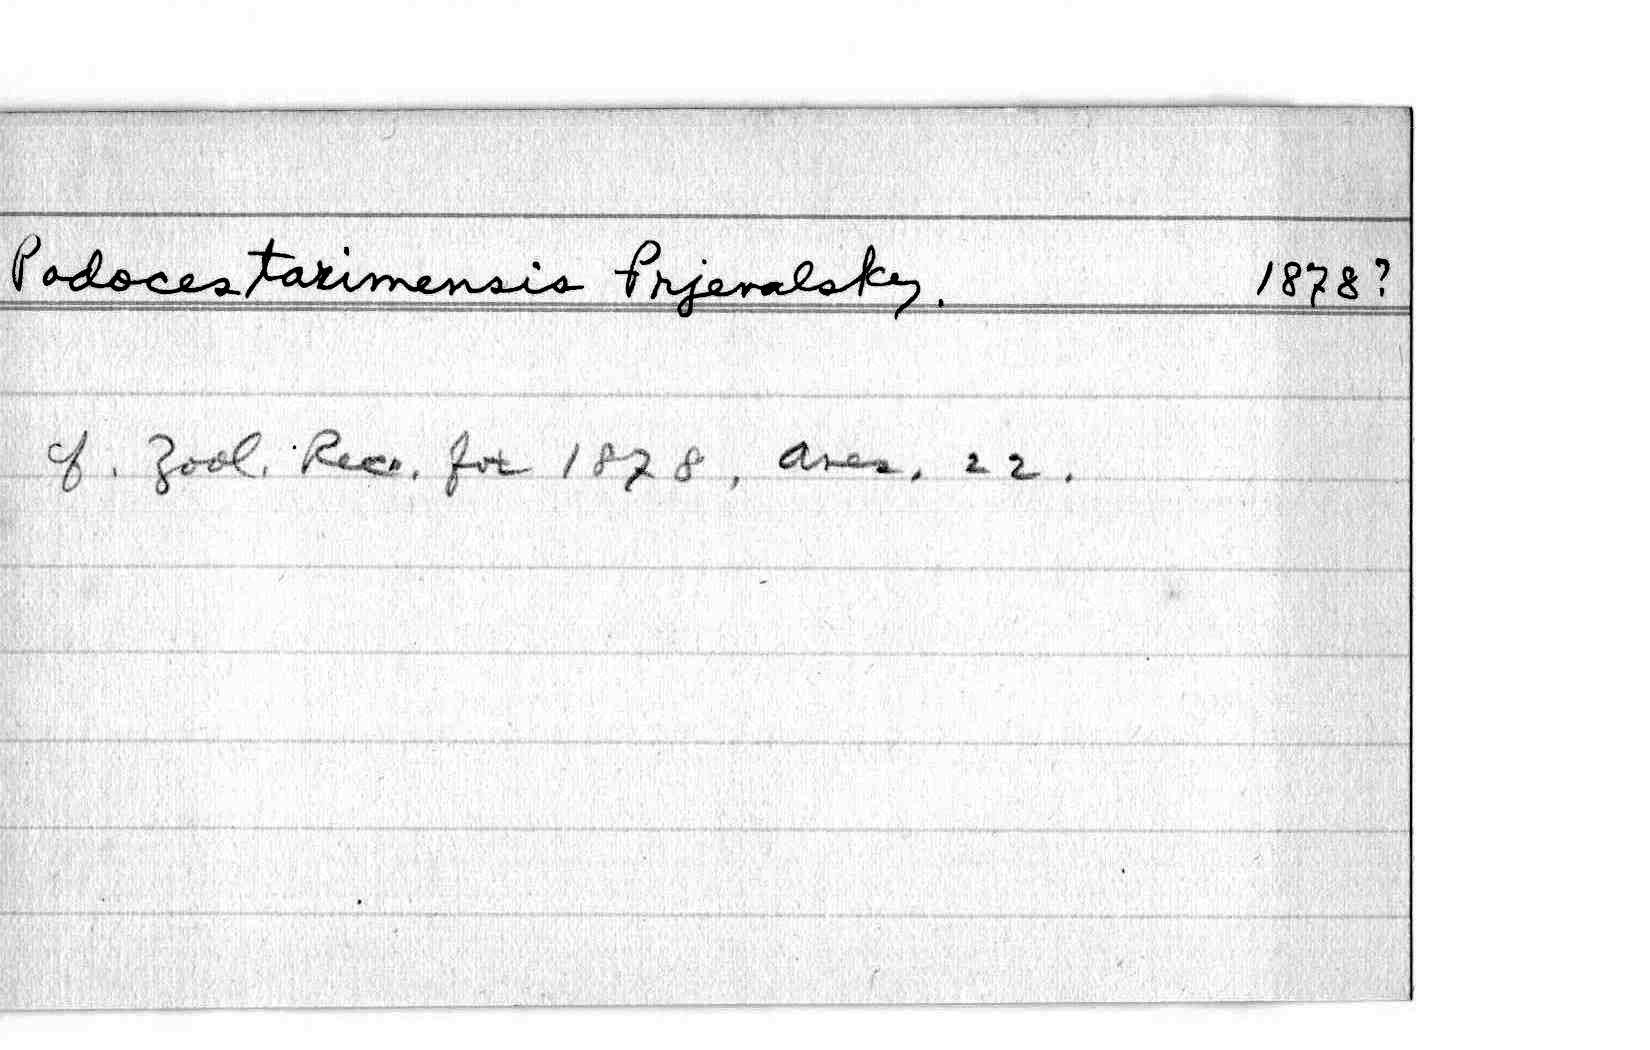 Podoces tarimensis Prjevalsky. 1878?
cf. Zool. Rec. for 1878, Aves. 22.